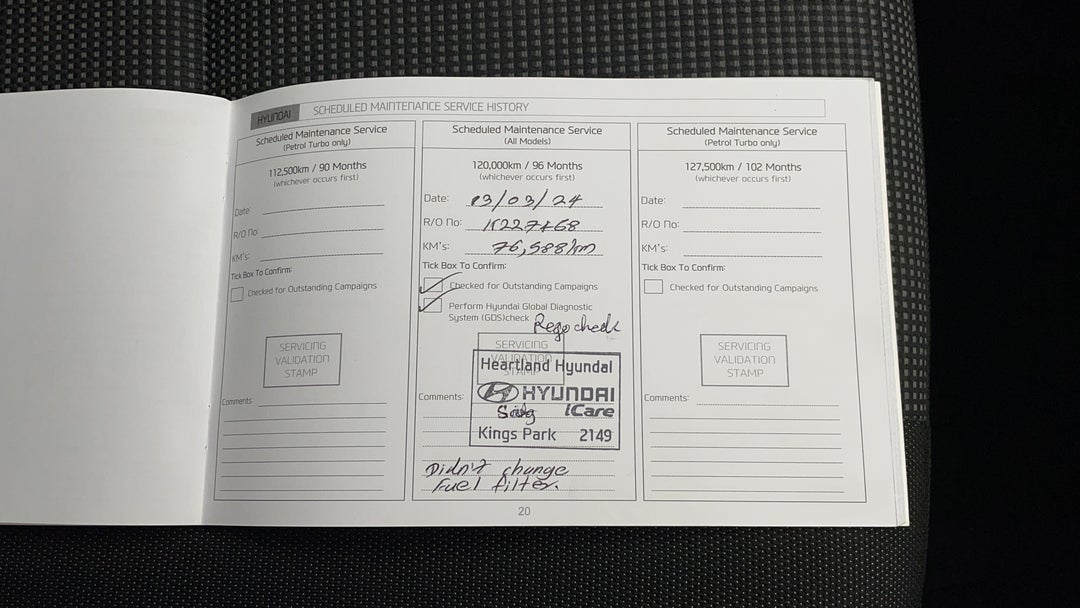 HYUNDAI SCHEDULED MAINTENANCE SERVICE HISTORY
Scheduled Maintenance Service
(Petrol Turbo only)
112,500km / 90 Months
(whichever occurs first)
Date:
R/O No:
KM's:
Tick Box To Confirm:
Checked for Outstanding Campaigns
SERVICING
VALIDATION
STAMP
Comments:
Scheduled Maintenance Service
(All Models)
120,000km / 96 Months
(whichever occurs first)
Date: 19/03/24
R/O No:
KM's: 76,588km
Tick Box To Confirm:
Checked for Outstanding Campaigns
Perform Hyundai Global Diagnostic
System (GDS)check Rego check
SERVICING
VALIDATION
STAMP
Heartland Hyundai
HYUNDAI
iCare
Kings Park 2149
Comments:
Didn't change
Fuel filter.
Scheduled Maintenance Service
(Petrol Turbo only)
127,500km / 102 Months
(whichever occurs first)
Date:
R/O No:
KM's:
Tick Box To Confirm:
Checked for Outstanding Campaigns
SERVICING
VALIDATION
STAMP
Comments:
20